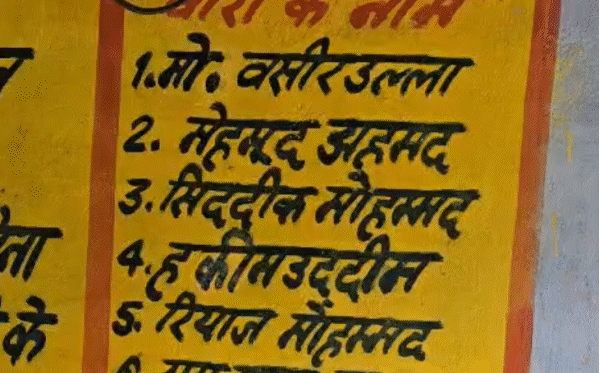 के नाम
1. मो. वसीरउल्ला
2. मेहमूद अहमद
3. सिददीक मोहम्मद
4. हकीमउददीन
5. रियाज मोहम्मद
के